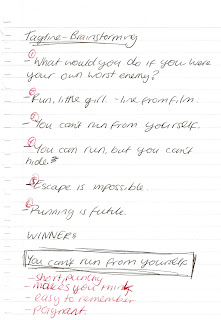 Tagline - Brainstorming
① - What would you do if you were
your own worst enemy?
② - Fun, little girl - line from film.
③ - You can't run from yourself.
④ - You can run, but you can't
hide.*
⑤ - Escape is impossible.
⑥ - Running is futile.
WINNER:
You can't run from yourself
- short, punchy
- makes you think
- easy to remember
- poignant